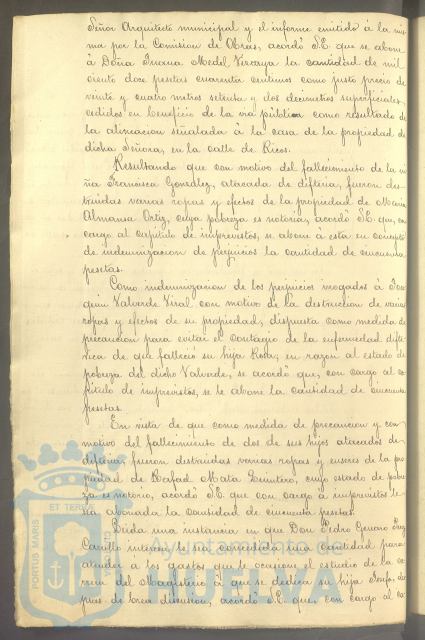 Señor Arquitecto municipal y el informe emitido á la mis-
ma por la Comision de Obras, acordó S.E. que se abone
á Doña Juana Medel Vizcaya la cantidad de mil
ciento doce pesetas cuarenta centimos como justo precio de
veinte y cuatro metros setenta y dos decimetros superficiales,
cedidos en beneficio de la via pública como resultado de
la alineacion señalada á la casa de la propiedad de
dicha Señora, en la calle de Ricos.
Resultando que con motivo del fallecimiento de la ni-
ña Francisca González, atacada de difteria, fueron des-
truidas varias ropas y efectos de la propiedad de Maria
Almansa Ortiz, cuya pobreza es notoria, acordó S.E. que, con
cargo al capitulo de imprevistos, se abone á esta en concepto
de indemnizacion de perjuicios la cantidad de cincuenta
pesetas.
Como indemnizacion de los perjuicios irrogados á Joa-
quin Valverde con motivo de la destruccion de varias
ropas y efectos de su propiedad, dispuesta como medida de
precaucion para evitar el contagio de la enfermedad difte-
rica de que falleció su hija Rosa, en razon al estado de
pobreza del dicho Valverde, se acordó que, con cargo al ca-
pitulo de imprevistos, se le abone la cantidad de cincuenta
pesetas.
En vista de que como medida de precaucion y con
motivo del fallecimiento de dos de sus hijos atacados de
difteria, fueron destruidas varias ropas y enseres de la pro-
piedad de Rafael Mata cuyo estado de pobre-
za es notorio, acordó S.E. que con cargo á imprevistos le
sea abonada la cantidad de cincuenta pesetas.
Leida una instancia en que Don Pedro Genaro
Carrillo interesa le sea concedida una cantidad para
atender á los gastos que le ocasiona el estudio de la ca-
rrera del Magisterio á que se dedica su hija Josefa, des-
pues de breve discusion, acordó S.E. que, con cargo al ca-
ET TERRAE
PORTUS MARIS
Ayuntamiento de
HUELVA